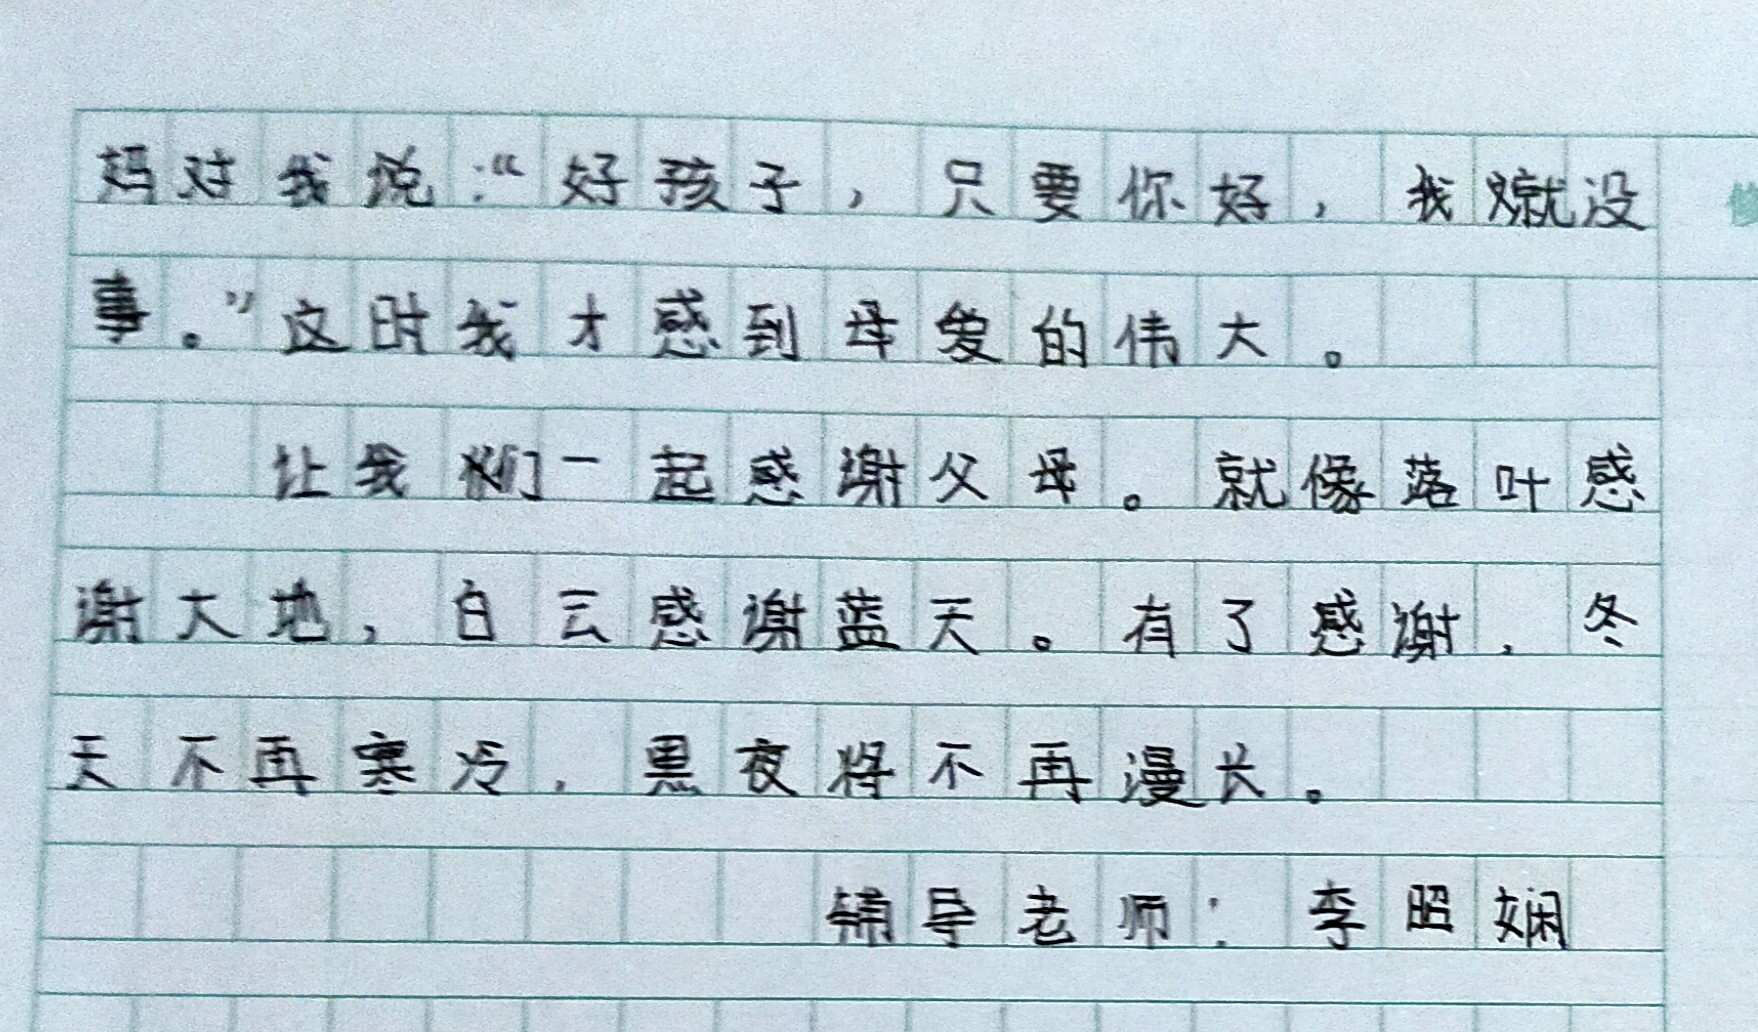 妈对我说:“好孩子,只要你好,我就没
事。”这时我才感到母爱的伟大。
让我们一起感谢父母。就像落叶感
谢大地,白云感谢蓝天。有了感谢,冬
天不再寒冷,黑夜将不再漫长。
辅导老师:李照娴